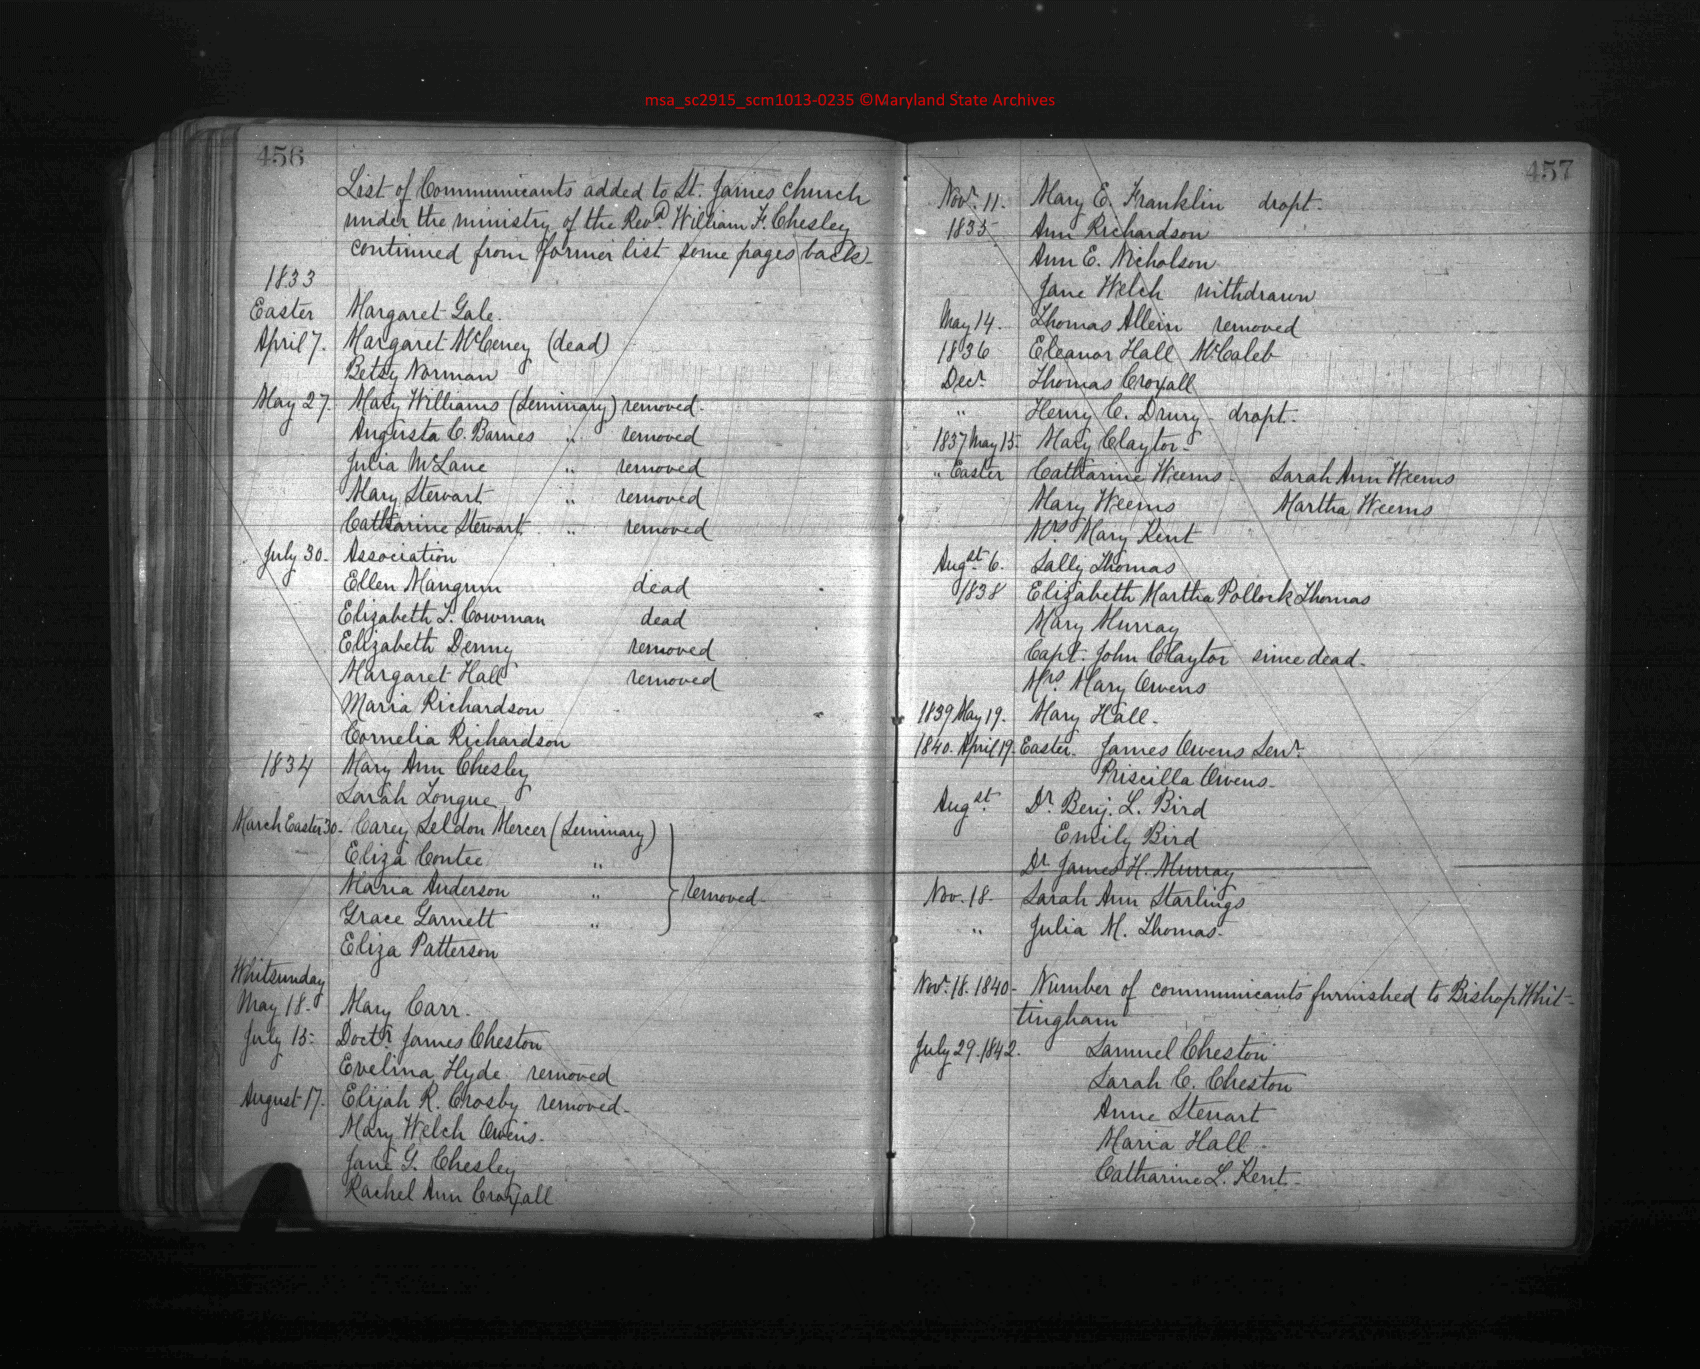 msa_sc2915_scm1013-0235 ©Maryland State Archives
456
List of Communicants added to St. James church
under the ministry of the Revd. William F. Chesley
continued from former list some pages back-
1833
Easter Margaret Gale.
April 7. Margaret McCeney (dead)
Betsy Norman
May 27. Mary Williams (Seminary) removed.
Augusta C. Barnes " removed
Julia McLane " removed
Mary Stewart " removed
Catharine Stewart " removed
July 30. Association
Ellen Mangum dead
Elizabeth L. Cowman dead
Elizabeth Denny removed
Margaret Hall removed
Maria Richardson
Cornelia Richardson
1834 Mary Ann Chesley
Sarah Tongue
March Easter 30- Carey Seldon Mercer (Seminary)
Eliza Contee "
Maria Anderson " removed-
Grace Garnett "
Eliza Patterson
Whitsunday
May 18. Mary Carr.
July 15- Doctr. James Cheston
Evelina Hyde removed
August 17. Elijah R. Crosby removed-
Mary Welch Owens.
Jane G. Chesley
Rachel Ann Croxall
457
Novr. 11. Mary E. Franklin dropt-
1835 Ann Richardson
Ann E. Nicholson
Jane Welch withdrawn
May 14. Thomas Allein removed
1836 Eleanor Hall McCaleb
Decr. Thomas Croxall
" Henry C. Drury- dropt-
1837 May 15- Mary Claytor-
" Easter Catharine Weems- Sarah Ann Weems
Mary Weems Martha Weems
Mrs. Mary Kent
Augst. 6. Sally Thomas
1838 Elizabeth Martha Pollock Thomas
Mary Murray
Capt. John Claytor since dead-
Mrs. Mary Owens
1839 May 19. Mary Hall-
1840. April 19. Easter. James Owens Senr.
Priscilla Owens-
Augst. Dr. Benj. L. Bird
Emily Bird
Dr. James H. Murray
Nov. 18- Sarah Ann Starlings
" Julia M. Thomas-
Novr. 18. 1840- Number of communicants furnished to Bishop Whit-
tingham
July 29. 1842. Samuel Cheston
Sarah C. Cheston
Anne Steuart
Maria Hall.
Catharine L. Kent-